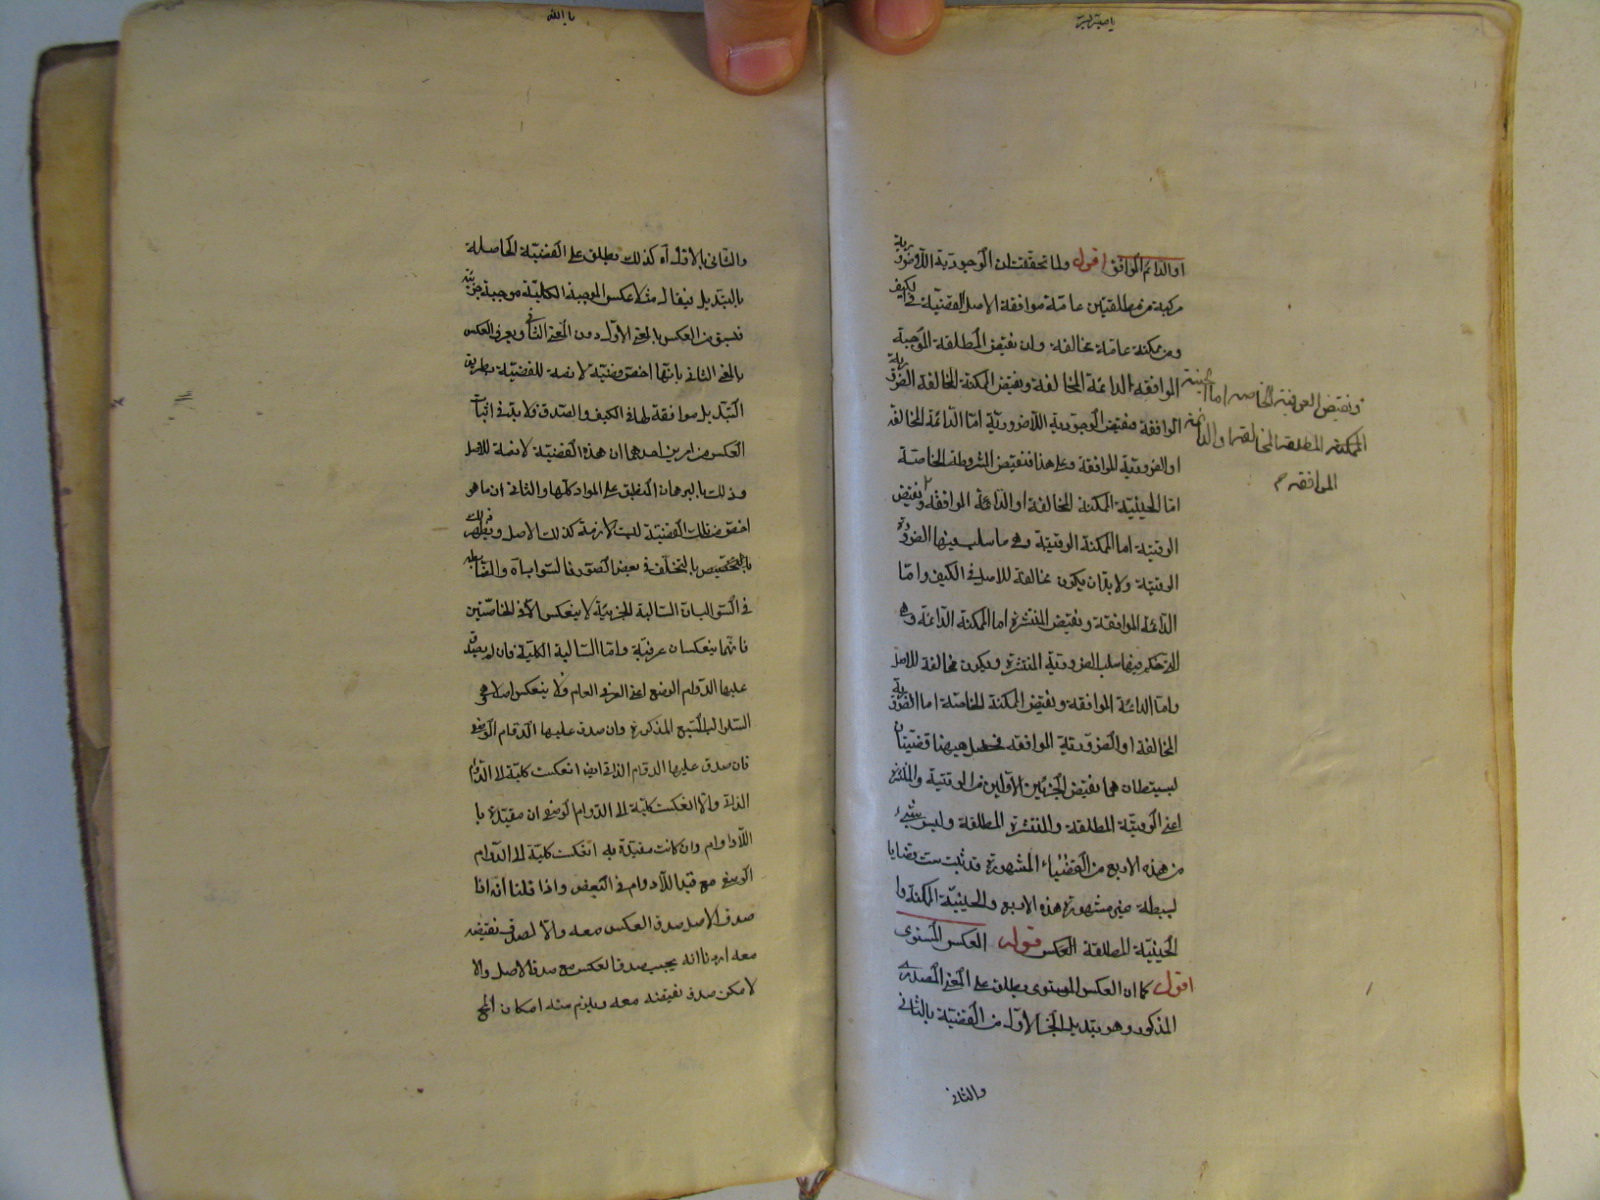 او الدائم الموافق اقول ولما تحققت ان الوجودية اللاضرورية
مركبة من مطلقتين عامة موافقة الاصل القضيّة في الكيف
ومن ممكنة عامة مخالفة وان نقيض المطلقة الموجبة
الموافقة الدائمة المخالفة ونقيض الممكنة المخالفة الضرورية
الموافقة فنقيض الوجودية اللاضرورية امّا الدائمة المخالفة
او الضرورية الموافقة وعلى هذا فنقيض المشروطة الخاصة
امّا الحينيّة الممكنة المخالفة او الدائمة الموافقة ونقيض
الوقتية اما الممكنة الوقتيّة وهي ما سلب فيها الضرورة
الوقتية ولا بد ان يكون مخالفة للاصل في الكيف وامّا
الدائمة الموافقة ونقيض المنتشرة اما الممكنة الدائمة وهي
التي حكم فيها سلب الضرورية المنتشرة ويكون مخالفة للاصل
وامّا الدائمة الموافقة ونقيض الممكنة الخاصّة اما الضرورية
المخالفة او الضرورية الموافقة فحصل هيهنا قضيتان
بسيطتان هما نقيض الجزئين الاوّلين من الوقتية والمنتشرة
اعني الوقتيّة المطلقة والمنتشرة المطلقة وليس شيء
من هذه الاربع من القضايا المشهورة قد ثبت ست قضايا
بسيطة غير مشهورة هذه الاربع والحينيّة الممكنة و
الحينيّة المطلقة العكس قوله العكس المستوى
اقول كما ان العكس المستوى يطلق على المعنى المصدرى
المذكور وهو تبديل الجزء الاوّل من القضيّة بالثاني
والثاني
ونقيض العرفية الخاصة اما الحينية
الممكنة المطلقة المخالفة او الدائمة
الموافقة
يا الله
والثاني بالاوّل آه كذلك يطلق على القضيّة الحاصلة
بالتبديل فيقال مثلا عكس الموجبة الكليّة موجبة جزئية
فنسق من العكس بالمعنى الاوّل دون المعنى الثاني ويعرف العكس
بالمعنى الثاني بانها اخصّ قضيّة لازمة للقضيّة بطريق
التبديل موافقة لها في الكيف والصدق فلا بد في اثبات
العكس من امرين احدهما ان هذه القضيّة لازمة للاصل
وذلك بالبرهان المنطبق على المواد كلّها والثاني ان ما هو
اخصّ من تلك القضيّة ليست لازمة كذلك الاصل ويظهر ذلك
بالتخصيص بالتخلّف في بعض الصّور فالسوالب آه والضّابطه
في السّوالب ان السالبة الجزئيّة لا ينعكس الا في الخاصّتين
فانهما ينعكسان عرفيّة وامّا السّالبة الكليّة فان لم يصدق
عليها الدّوام الوضع اعني العرفي العام فلا ينعكس اصلا هي
السّوالب السّبع المذكورة وان صدق عليها الدّوام الوصفي
فان صدق عليها الدوام الذاتي ايضا انعكست كليّة الى الدّوام
الذاتي والّا انعكست كليّة الى الدّوام الوصفي ان مقيّدة با
اللّادوام وان كانت مقيّدة به انعكست كليّة الى الدّوام
الوصفي مع قيد اللّادوام في البعض واذا قلنا انّه اذا
صدق الاصل صدق العكس معه والّا لصدق نقيضه
معه اردنا انه يجب صدق العكس مع صدق الاصل والّا
لامكن صدق نقيضه معه ويلزم منه امكان المح